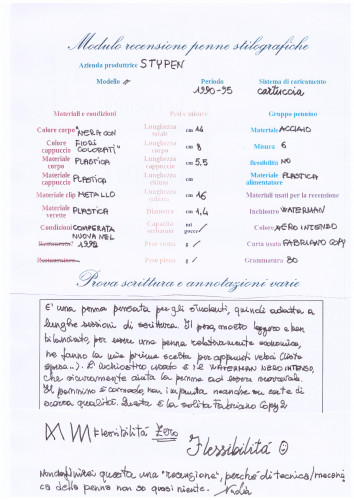 Modulo recensione penne stilografiche
Azienda produttrice STYPEN
Modello Periodo Sistema di caricamento
1990-95 cartuccia
Materiali e condizioni Pesi e misure Gruppo pennino
Colore corpo "NERA CON Lunghezza totale cm 14 Materiale ACCIAIO
Colore cappuccio FIORI COLORATI" Lunghezza corpo cm 8 Misura 6
Materiale corpo PLASTICA Lunghezza cappuccio cm 5.5 flessibilità NO
Materiale cappuccio PLASTICA Lunghezza chiusa cm Materiale alimentatore PLASTICA
Materiale clip METALLO Lunghezza calzata cm 16 Materiali usati per la recensione
Materiale verette PLASTICA Diametro cm 1,4 Inchiostro WATERMAN
Condizioni COMPERATA NUOVA NEL 1992 Capacità serbatoio ml gocce / Colore NERO INTENSO
Peso vuota g / Carta usata FABRIANO COPY
Peso piena g / Grammatura 80
Prova scrittura e annotazioni varie
E' una penna pensata per gli studenti, quindi adatta a
lunghe sessioni di scrittura. Il peso, molto leggero e ben
bilanciato, per essere una penna relativamente economica,
ne fanno la mia prima scelta per appunti veloci (lista
spesa..). L'inchiostro usato è il WATERMAN NERO INTENSO,
che sicuramente aiuta la penna ad essere scorrevole.
Il pennino è comodo, non impunta neanche su carte di
scarsa qualità. Questa è la solita Fabriano Copy 2
Flessibilità Zero
Flessibilità 0
Non definirei questa una "recensione", perché di tecnica/meccani
ca della penna non so quasi niente. Nadia